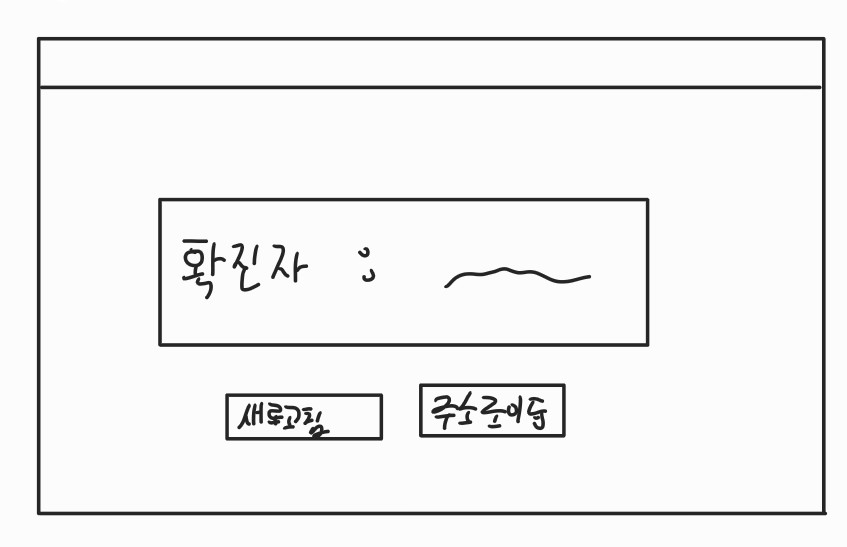 확진자 :
새로고침
주소로이동